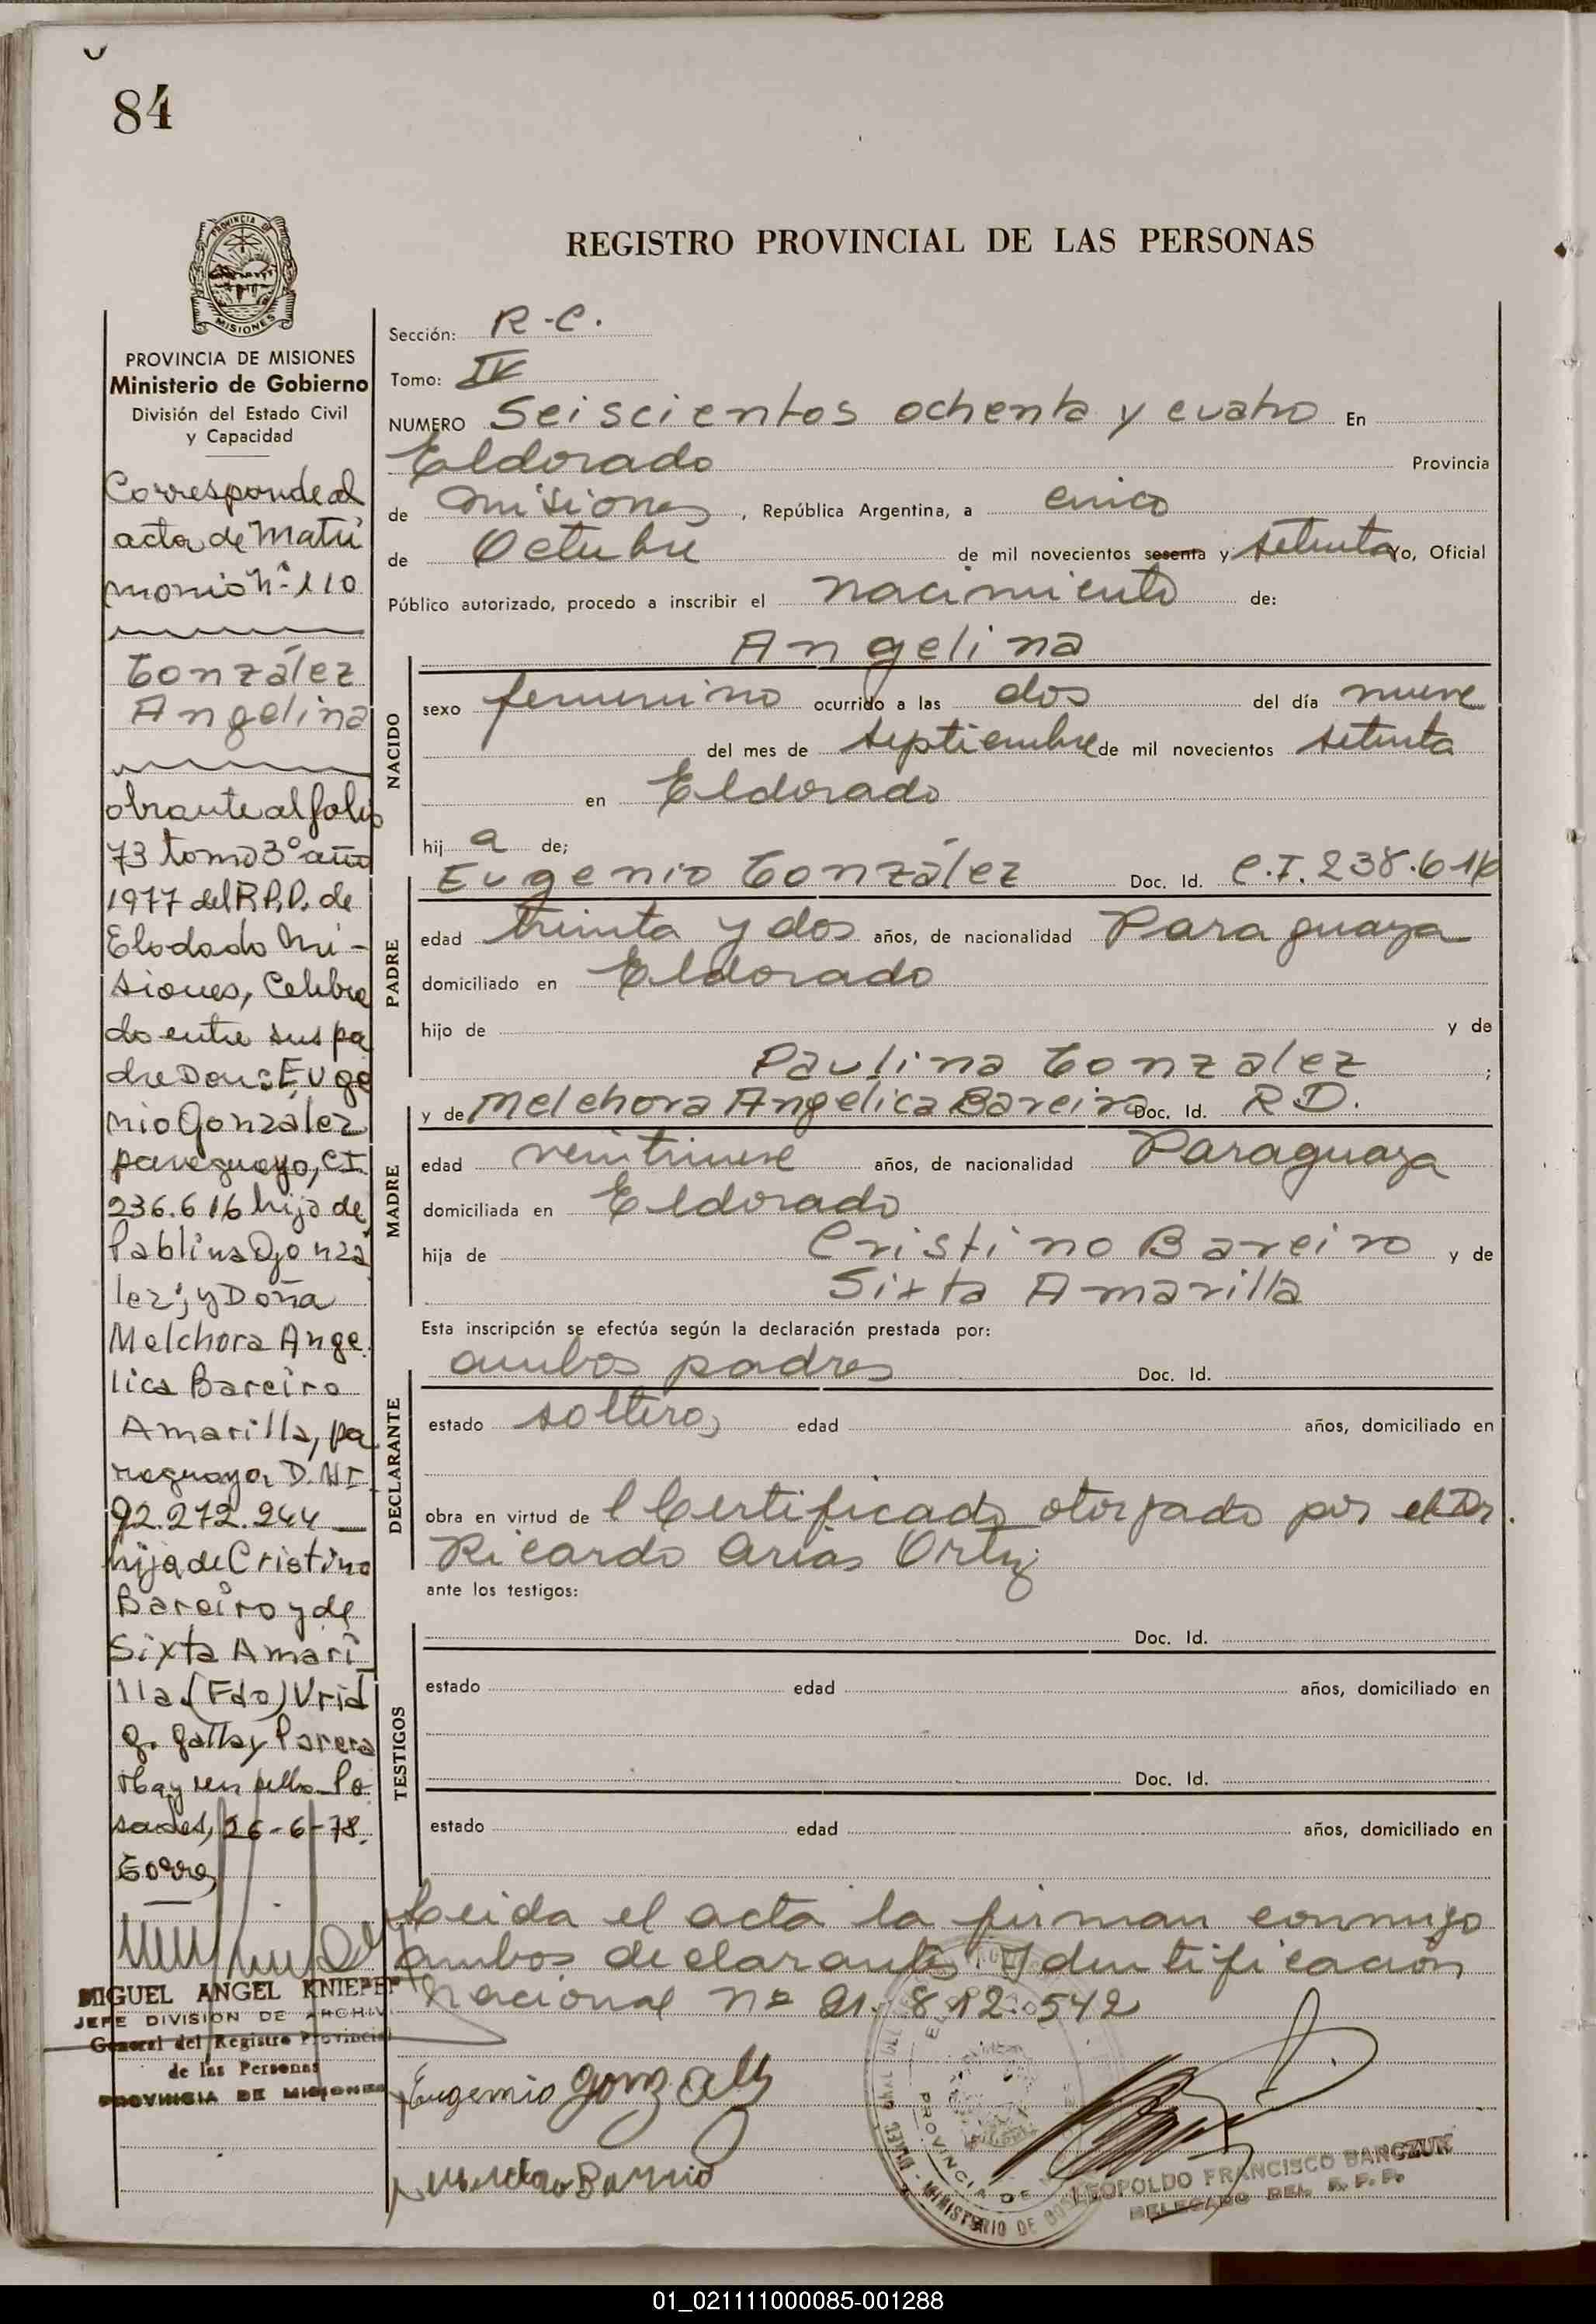 84
REGISTRO PROVINCIAL DE LAS PERSONAS
PROVINCIA DE
MISIONES
PROVINCIA DE MISIONES
Ministerio de Gobierno
División del Estado Civil
y Capacidad
Corresponde al
acta de Matri
monio Nº 110
González
Angelina
obrante al folio
73 tomo 3º año
1977 del R.P.P. de
Elodado Mi-
siones, Celebra
do entre sus pa
dre Don: Euge
nio González
paraguayo, CI
236.616 hijo de
Pablina Gonza
lez; y Doña
Melchora Ange
lica Bareiro
Amarilla, pa
raguaya D.NI.
92.272.944
hija de Cristino
Bareiro y de
Sixta Amari
lla (Fdo)
Hay un sello Po
sadas, 26-6-78.
MIGUEL ANGEL KNIEPER
JEFE DIVISION DE ARCHIV
General del Registro Provincial
de las Personas
PROVINCIA DE MISIONES
Sección: R-C.
Tomo: IV
NUMERO Seiscientos ochenta y cuatro En
Eldorado Provincia
de Misiones, República Argentina, a cinco
de Octubre de mil novecientos sesenta y setenta Yo, Oficial
Público autorizado, procedo a inscribir el nacimiento de:
Angelina
NACIDO
sexo femenino ocurrido a las dos del día nueve
del mes de septiembre de mil novecientos setenta
en Eldorado
hij a de;
Eugenio González Doc. Id. C.I. 238.616
PADRE
edad treinta y dos años, de nacionalidad Paraguaya
domiciliado en Eldorado
hijo de y de
Paulina Gonzalez ;
y de Melchora Angelica Bareiro Doc. Id. R.D.
MADRE
edad veintinueve años, de nacionalidad Paraguaya
domiciliada en Eldorado
hija de Cristino Bareiro y de
Sixta Amarilla
Esta inscripción se efectúa según la declaración prestada por:
ambos padres Doc. Id.
DECLARANTE
estado solteros edad años, domiciliado en
obra en virtud de l Certificado otorgado por el Dr.
Ricardo Arias Ortiz
ante los testigos:
Doc. Id.
TESTIGOS
estado edad años, domiciliado en
Doc. Id.
estado edad años, domiciliado en
Leida el acta la firman conmigo
ambos declarantes. Identificación
Nacional nº 21.812.542
Eugenio Gonzalez
LEOPOLDO FRANCISCO BANCZUK
DELEGADO DEL R. P. P.
01_021111000085-001288